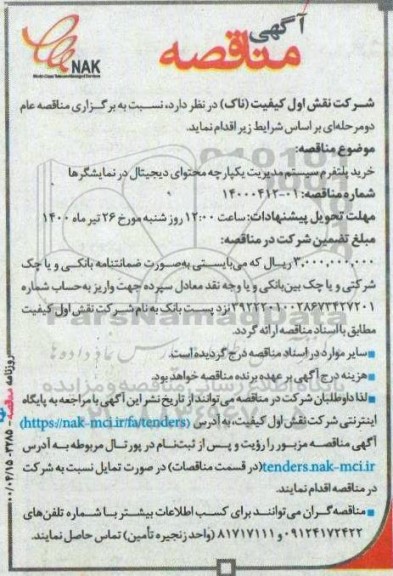 آگهی
مناقصه
NAK
World-Class Telecom Managed Services
شرکت نقش اول کیفیت (ناک) در نظر دارد، نسبت به برگزاری مناقصه عام
دو مرحله‌ای بر اساس شرایط زیر اقدام نماید.
موضوع مناقصه:
خرید پلتفرم سیستم مدیریت یکپارچه محتوای دیجیتال در نمایشگرها
شماره مناقصه: ۰۱-۱۴۰۰۰۴۱۲
مهلت تحویل پیشنهادات: ساعت ۱۲:۰۰ روز شنبه مورخ ۲۶ تیر ماه ۱۴۰۰
مبلغ تضمین شرکت در مناقصه:
۳,۰۰۰,۰۰۰,۰۰۰ ریال که می‌بایستی به‌صورت ضمانتنامه بانکی و یا چک
شرکتی و یا چک بین‌بانکی و یا وجه نقد معادل سپرده جهت واریز به حساب شماره
۳۹۲۲۲۰۱۰۰۲۸۶۷۳۴۲۷۲۰۱ نزد پست بانک به نام شرکت نقش اول کیفیت
مطابق با اسناد مناقصه ارائه گردد.
■ سایر موارد در اسناد مناقصه درج گردیده است.
■ هزینه درج آگهی بر عهده برنده مناقصه خواهد بود.
■ لذا داوطلبان شرکت در مناقصه می‌توانند از تاریخ نشر این آگهی با مراجعه به پایگاه
اینترنتی شرکت نقش اول کیفیت، به آدرس (https://nak-mci.ir/fa/tenders)
آگهی مناقصه مزبور را رؤیت و پس از ثبت‌نام در پورتال مربوطه به آدرس
tenders.nak-mci.ir (در قسمت مناقصات) در صورت تمایل نسبت به شرکت
در مناقصه اقدام نمایند.
■ مناقصه‌گران می‌توانند برای کسب اطلاعات بیشتر با شماره تلفن‌های
۰۹۱۲۴۱۷۲۴۲۲ و ۸۱۷۱۷۱۱۱ (واحد زنجیره تأمین) تماس حاصل نمایند.
روزنامه مناقصه - ۳۲۸۵ - ۰۰/۰۴/۱۵
ParsNamadData
پایگاه اطلاع رسانی مناقصه و مزایده